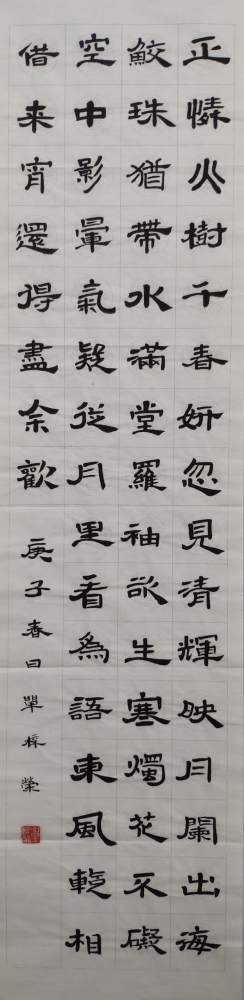 正憐火樹千春妍忽見清輝映月闌出海
鮫珠猶帶水滿堂羅袖欲生寒燭花不礙
空中影暈氣疑從月里看為語東風暫相
借来宵還得盡余歡
庚子春日 單榮